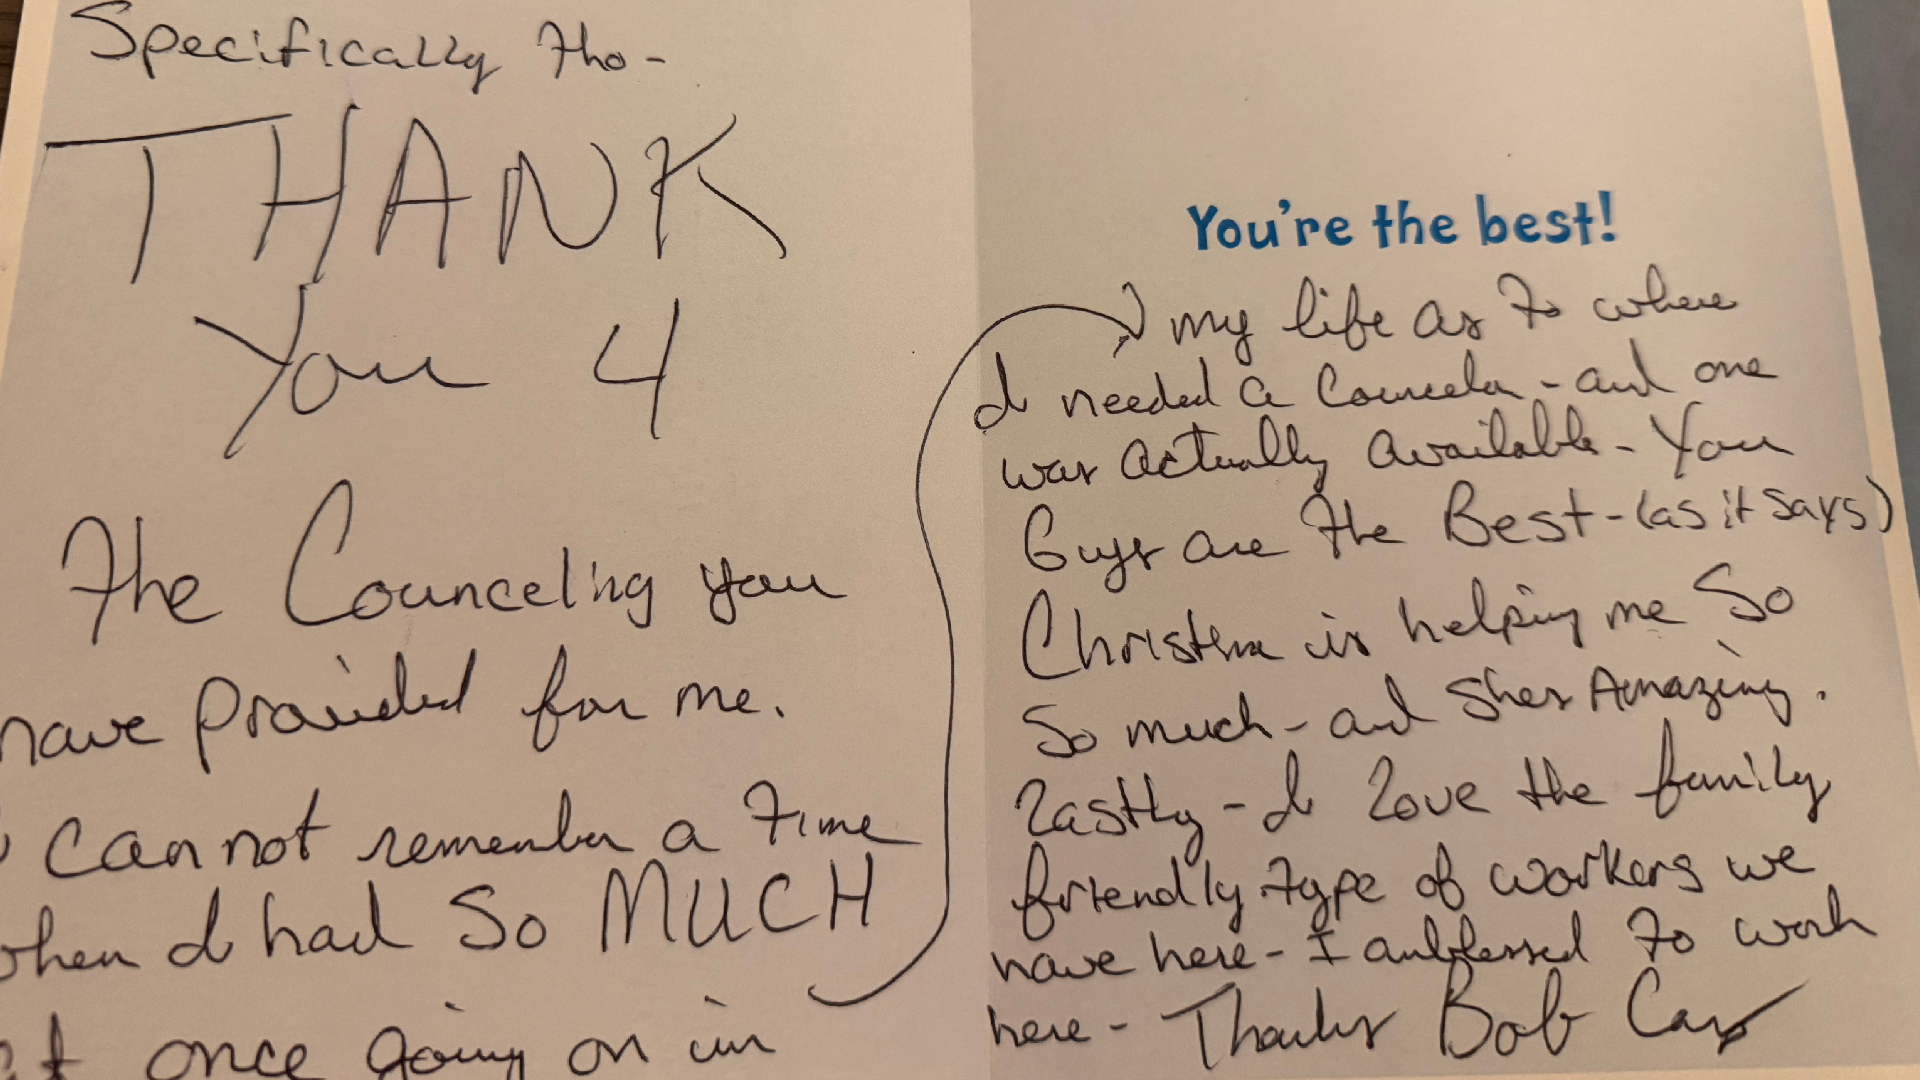 Specifically tho-
THANK
You 4
The Counceling you
have provided for me.
I cannot remember a time
when I had So MUCH
at once going on in
You're the best!
my life as to where
I needed a Councelor - and one
was actually available - You
Guys are the Best - (as it says)
Christina is helping me So
So much - and Shes Amazing.
Lastly - I Love the family
friendly type of workers we
have here - I am blessed to work
here - Thanks Bob